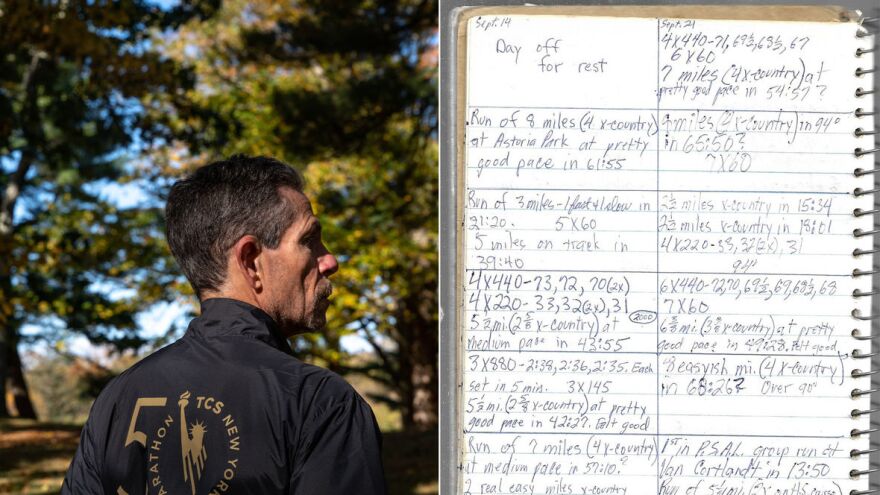 5
TCS
NEW YORK
MARATHON
Sept. 14
Day off
for rest
Run of 8 miles (4 x-country)
at Astoria Park at pretty
good pace in 61:55
Run of 3 miles - 1 fast + 1 slow in
21:20. 5X60
5 miles on track in
39:40
4X440-73, 72, 70(2x)
4X220-33, 32(2x), 31
2000
medium pace in 43:55
3X880-2:38, 2:36, 2:35. Each
set in 5 min. 3X145
5½ mi. (2⅝ x-country) at pretty
good pace in 42:2?. Felt good
Run of 7 miles (4 x-country)
at medium pace in 57:10.?
2 real easy miles x-country
Sept. 21
4X440-71, 69½, 68½, 67
6X60
7 miles (4x-country) at
pretty good pace in 54:57?
miles (2 x-country) in 94°
in 65:50?
7X60
2½ miles x-country in 15:34
2½ miles x-country in 18:01
4X220-33, 32(2x), 31
94°
6X440-72, 70, 69½, 69, 68½, 68
7X60
6⅝ mi. (3⅝ x-country) at pretty
good pace in 49:28. Felt good
8 easyish mi. (4 x-country)
in 68:26? Over 90°
1st in P.S.A.L. group run at
Van Cortlandt in 13:50
Run of 5½ mi.